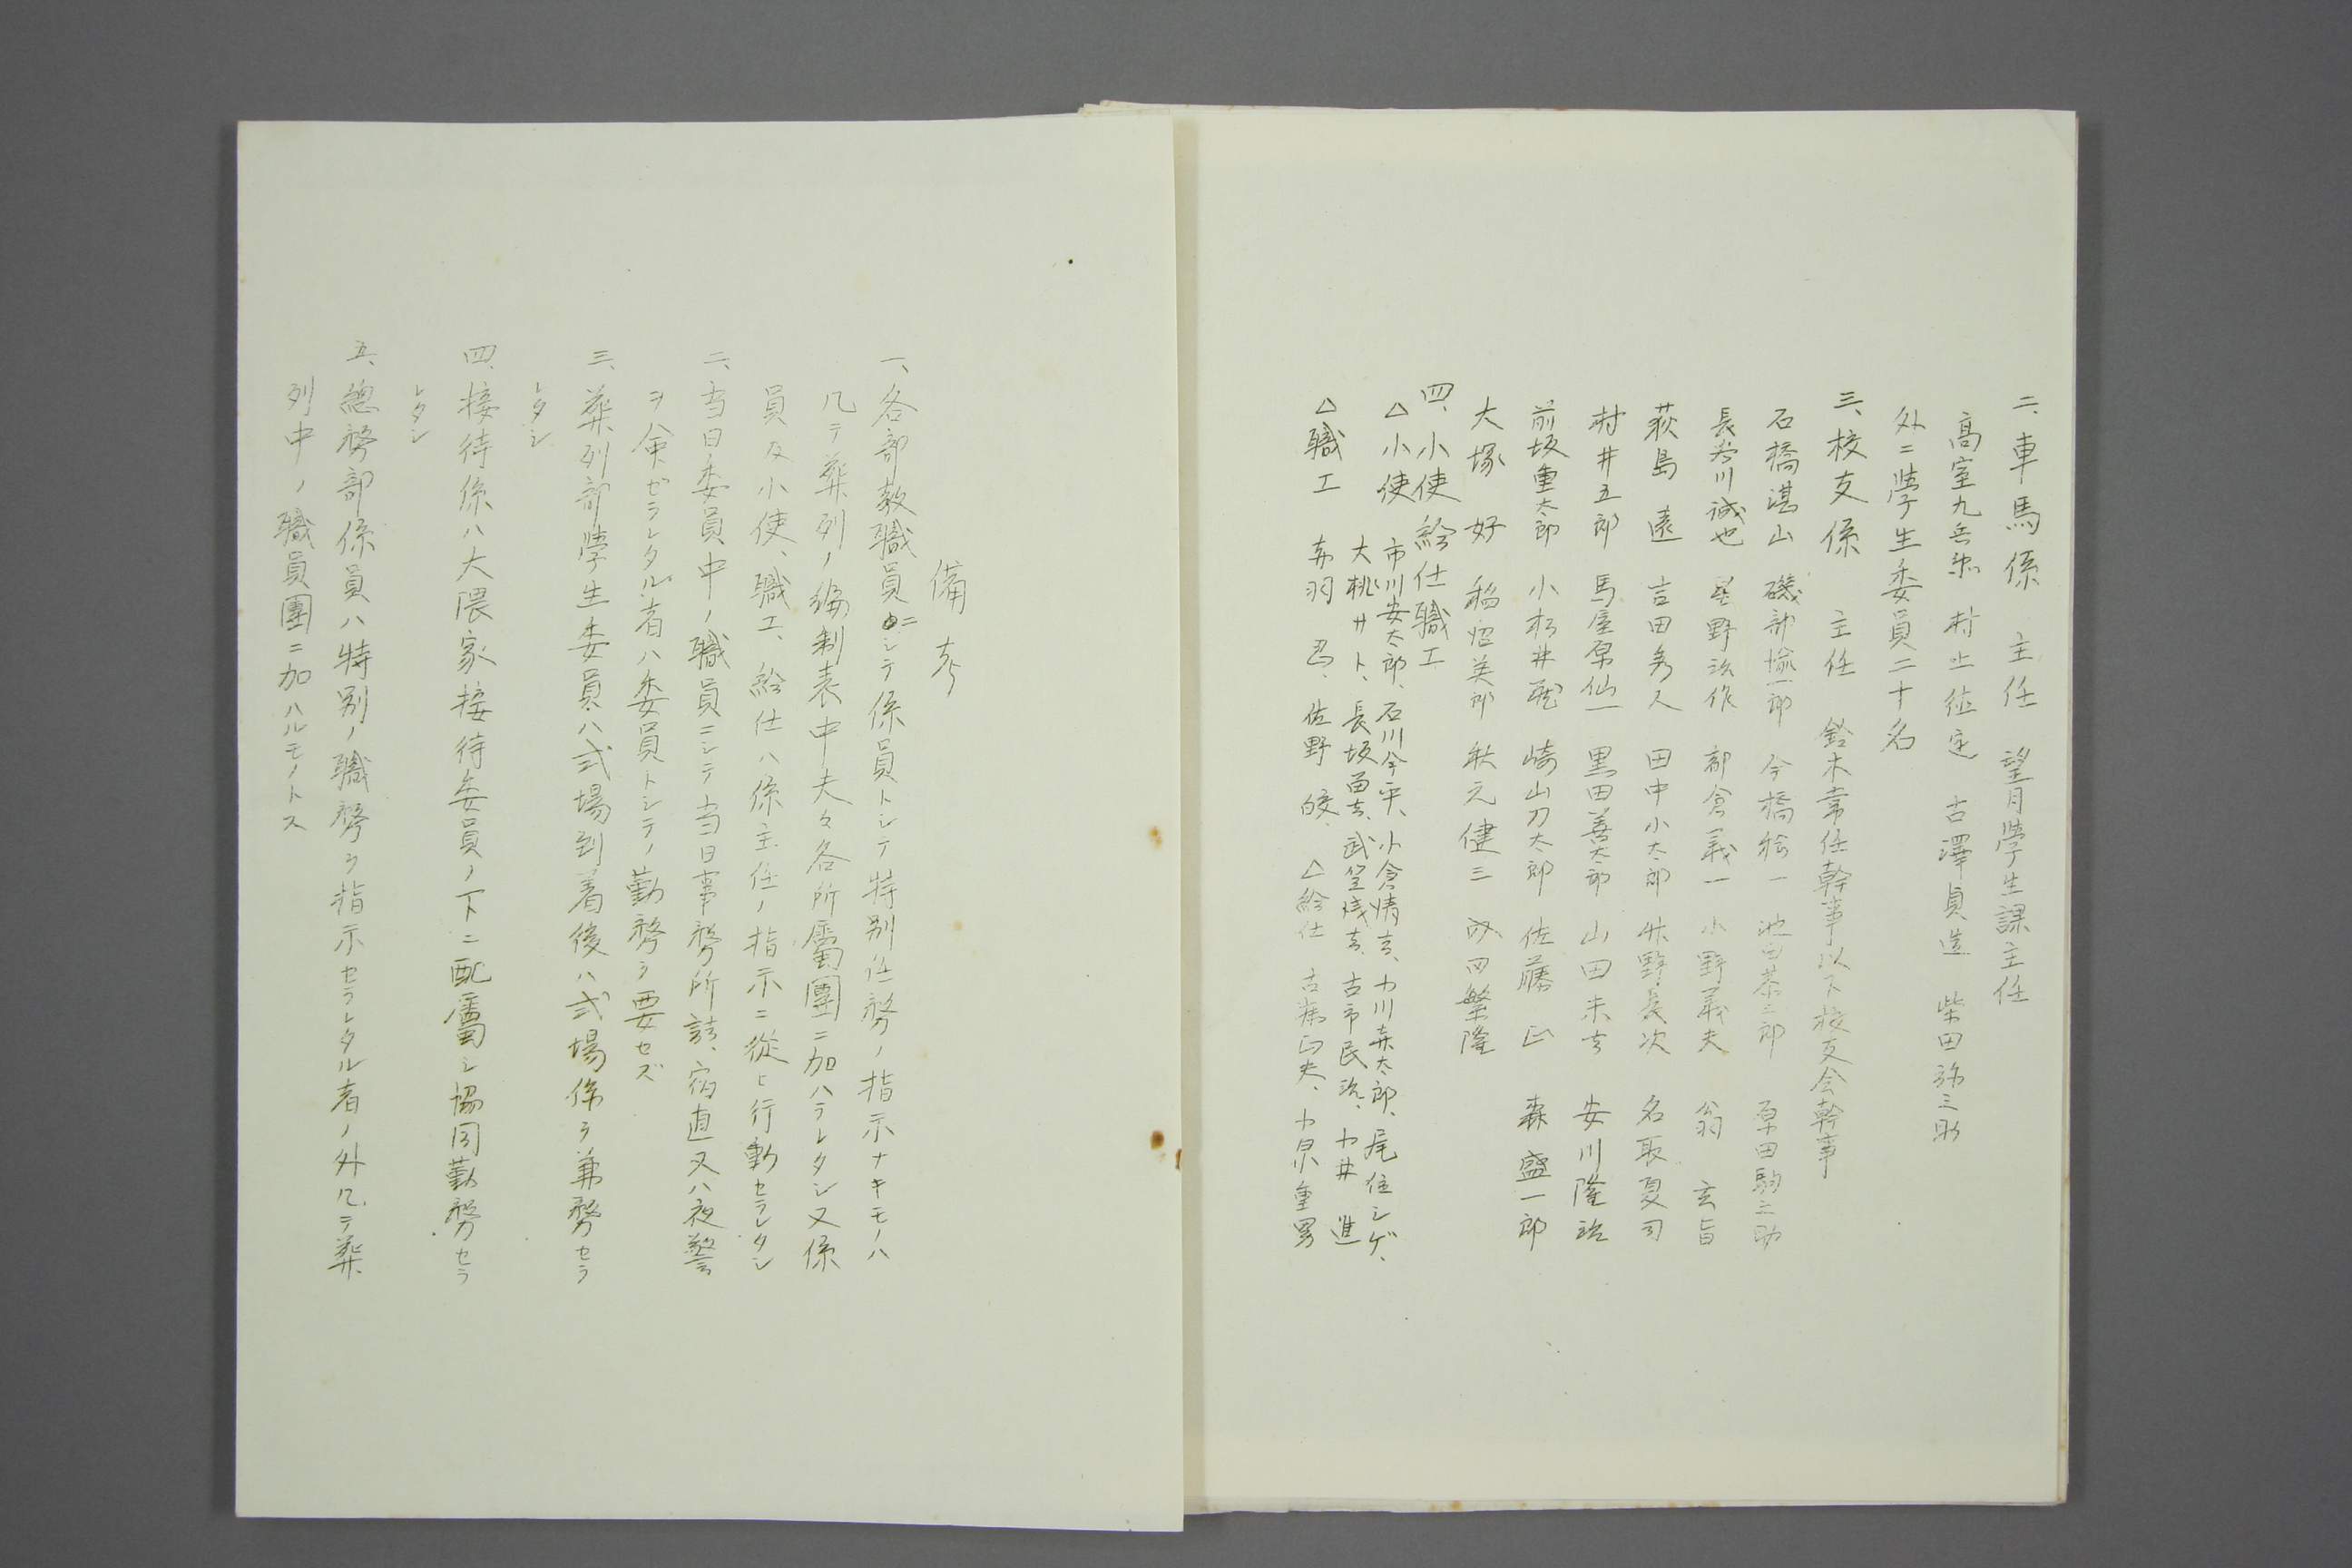 二、車馬係　主任　望月學生課主任
高室九兵衛　村上德定　古澤貞造　柴田弥三助
外ニ學生委員二十名
三、校友係　主任　鈴木常任幹事以下校友会幹事
石橋湛山　磯部愉一郎　今橋　一　池田茶三郎　原田駒之助
長谷川誠也　星野治作　都倉義一　小野義夫　翁　玄旨
荻島　遠　吉田秀人　田中小太郎　牧野長次　名取夏司
村井五郎　馬屋原仙一　黒田善太郎　山田末吉　安川隆治
前坂重太郎　小松井　﨑山刀太郎　佐藤　正　森　盛一郎
大塚　好　稲垣美郎　秋元健三　四繁隆
四、小使給仕職工
△小使　市川安太郎、石川今平、小倉清吉、小川寿太郎、尾住シゲ、
大桃サト、長坂留吉、武　吉、古市民治、中井　進
△職工　赤羽　、佐野　皎、△給仕　古　正夫、小泉重男
備考
一、各部教職員ニシテ係員トシテ特別任務ノ指示ナキモノハ
凡テ葬列ノ編制表中夫々各所屬團ニ加ハラレタシ又係
員及小使、職工、給仕ハ係主任ノ指示ニ從ヒ行動セラレタシ
二、当日委員中ノ職員ニシテ当日事務所詰、宿直又ハ夜警
ヲ命ゼラレタル者ハ委員トシテノ勤務ヲ要セズ
三、葬列部學生委員ハ式場到着後ハ式場係ヲ兼務セラ
レタシ
四、接待係ハ大隈家接待委員ノ下ニ配屬シ協同勤務セラ
レタシ
五、總務部係員ハ特別ノ職務ヲ指示セラレタル者ノ外凡テ葬
列中ノ職員團ニ加ハルモノトス